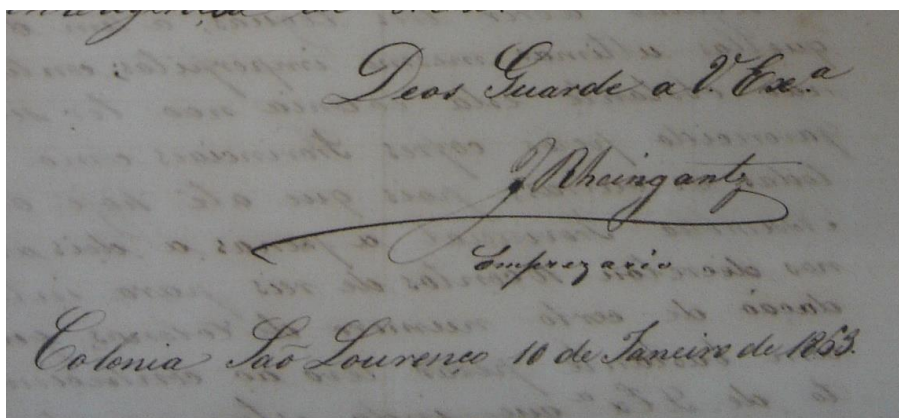 Deos Guarde a V. Exª
J Rheingantz
Emprezario
Colonia Saõ Lourenço 10 de Janeiro de 1863.